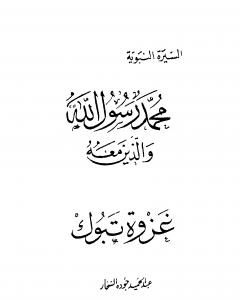 السيرة النبوية
محمد رسول الله
والذين معه
غزوة تبوك
عبد الحميد جوده السحار